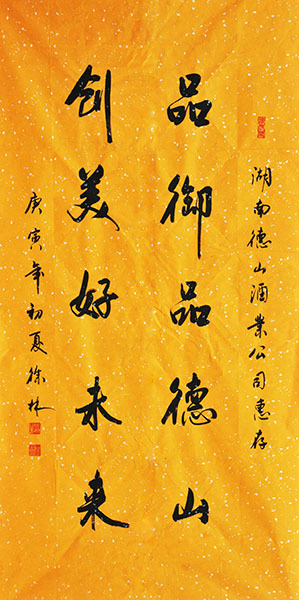 湖南德山酒业公司惠存
品御品德山
创美好未来
庚寅年初夏徐林